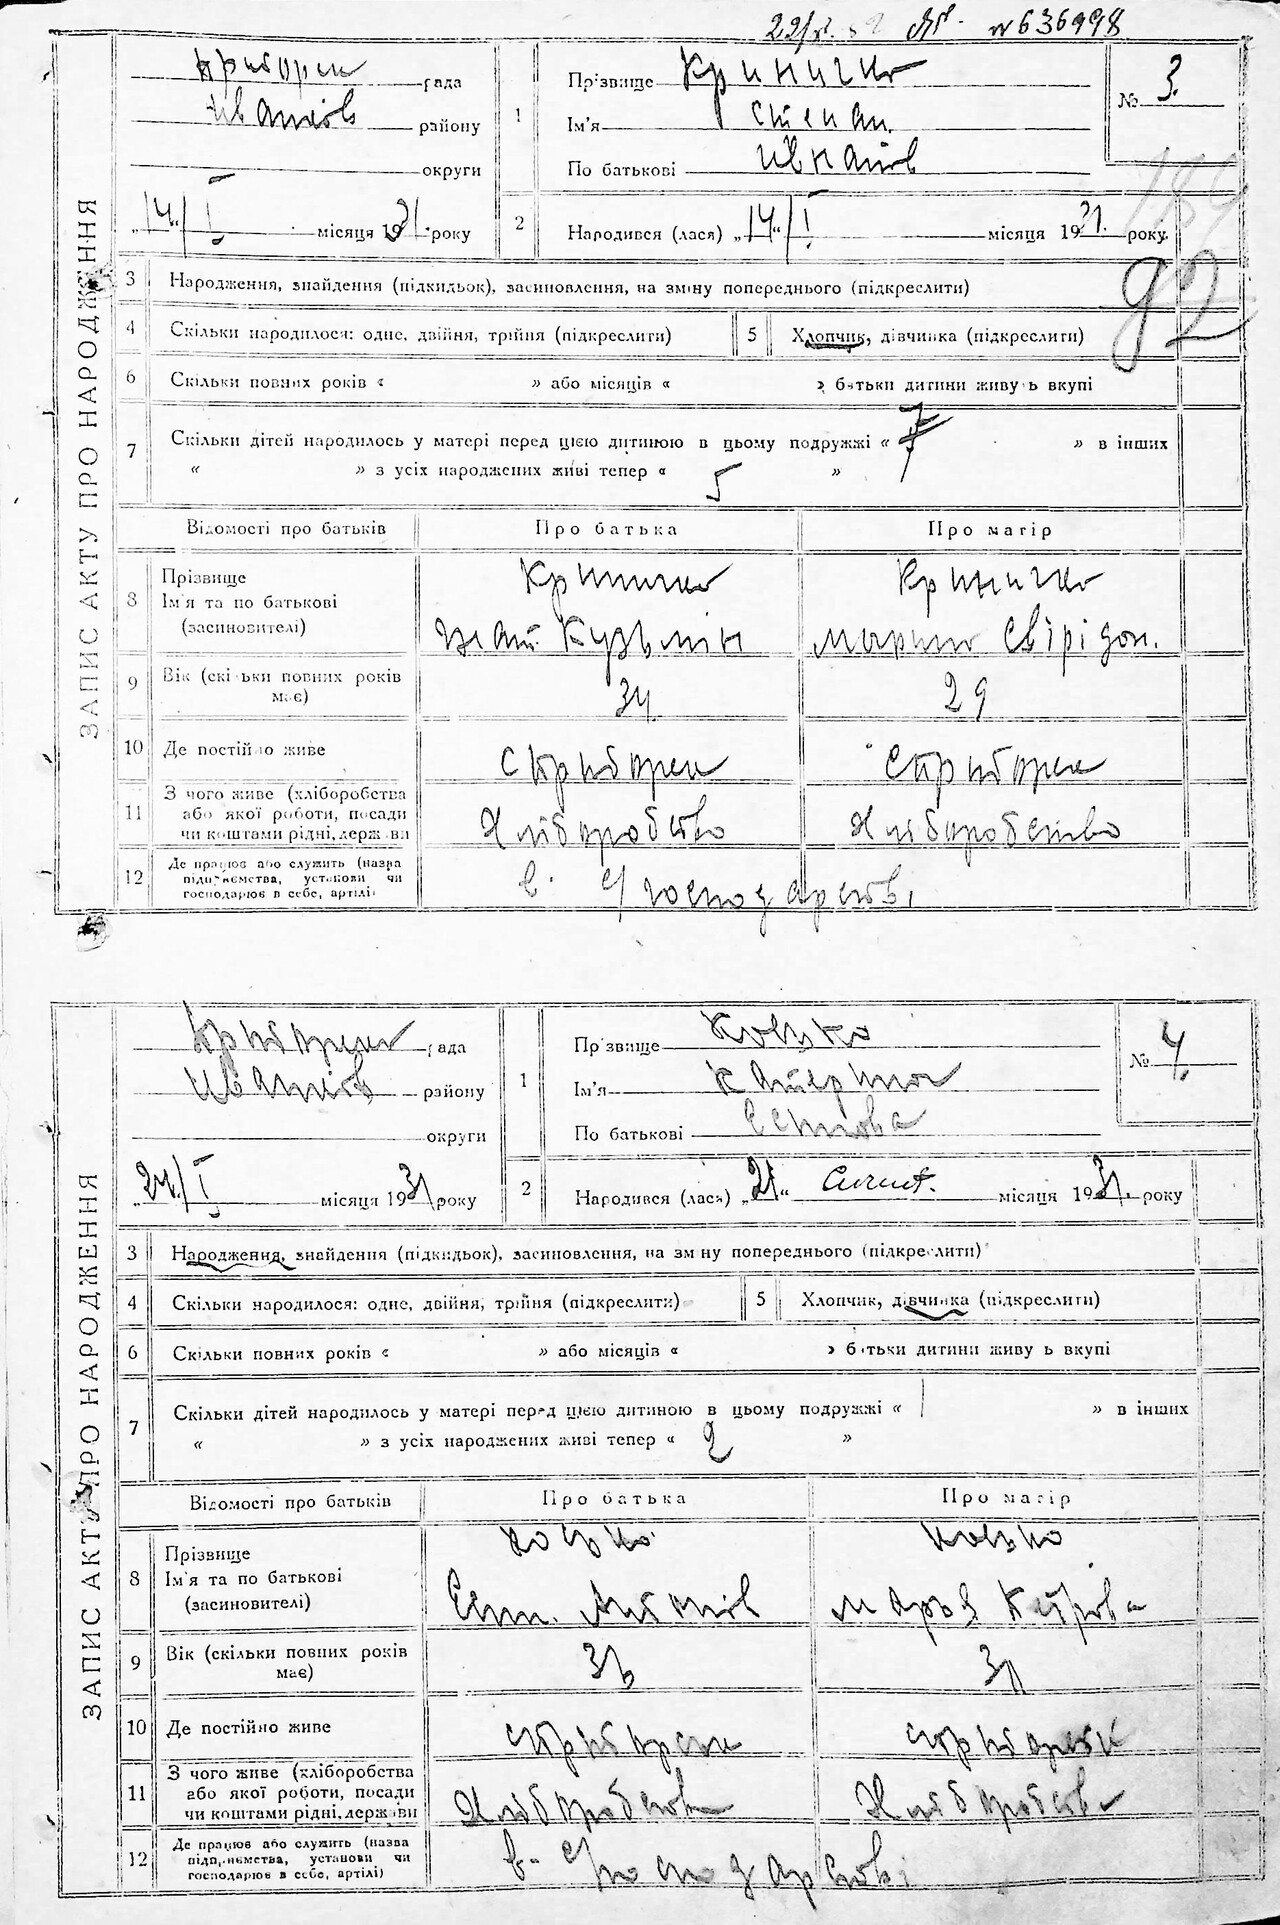 N 636998
ЗАПИС АКТУ ПРО НАРОДЖЕННЯ
рада
Іванків району
округи
„14“/I місяця 1931 року
1
Прізвище Криничко
Ім'я Степан
По батькові Ігнатів
№ 3.
189
92
2
Народився (лася) „14“/I місяця 1931. року
3 Народження, знайдення (підкидьок), засиновлення, на зміну попереднього (підкреслити)
4 Скільки народилося: одне, двійня, трійня (підкреслити)
5 Хлопчик, дівчинка (підкреслити)
6 Скільки повних років « » або місяців « » батьки дитини живуть вкупі
7 Скільки дітей народилось у матері перед цією дитиною в цьому подружжі « 7 » в інших
« » з усіх народжених живі тепер « 5 »
Відомості про батьків Про батька Про матір
8 Прізвище
Ім'я та по батькові
(засиновителі)
Криничко
Ігнат Кузьмін
Криничко
Марина Свірідон.
9 Вік (скільки повних років
має)
34
29
10 Де постійно живе
11 З чого живе (хліборобства
або якої роботи, посади
чи коштами рідні, держави
Хліборобство
Хліборобство
12 Де працює або служить (назва
підприємства, установи чи
господарює в себе, артілі)
в с/господарстві
ЗАПИС АКТУ ПРО НАРОДЖЕННЯ
рада
Іванків району
округи
„24“/I місяця 1931 року
1
Прізвище
Ім'я Катерина
По батькові
№ 4.
2
Народився (лася) „21“ місяця 1931. року
3 Народження, знайдення (підкидьок), засиновлення, на зміну попереднього (підкреслити)
4 Скільки народилося: одне, двійня, трійня (підкреслити)
5 Хлопчик, дівчинка (підкреслити)
6 Скільки повних років « » або місяців « » батьки дитини живуть вкупі
7 Скільки дітей народилось у матері перед цією дитиною в цьому подружжі « » в інших
« » з усіх народжених живі тепер « 2 »
Відомості про батьків Про батька Про матір
8 Прізвище
Ім'я та по батькові
(засиновителі)
Марья Петрова
9 Вік (скільки повних років
має)
10 Де постійно живе
11 З чого живе (хліборобства
або якої роботи, посади
чи коштами рідні, держави
Хліборобство
Хліборобство
12 Де працює або служить (назва
підприємства, установи чи
господарює в себе, артілі)
в с/господарстві